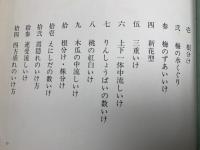 壱 根分け
弐 梅の水くぐり
参 梅のずあいいけ
四 新花型
五 三重いけ
六 上下一体中流しいけ
七 りんしょうばいの数いけ
八 桃の紅白いけ
九 木瓜の中流しいけ
拾 根分け・株分け
拾壱 えにしだの数いけ
拾弐 霞隠れのいけ方
拾参 連受流しいけ
拾四 四方垂れのいけ方